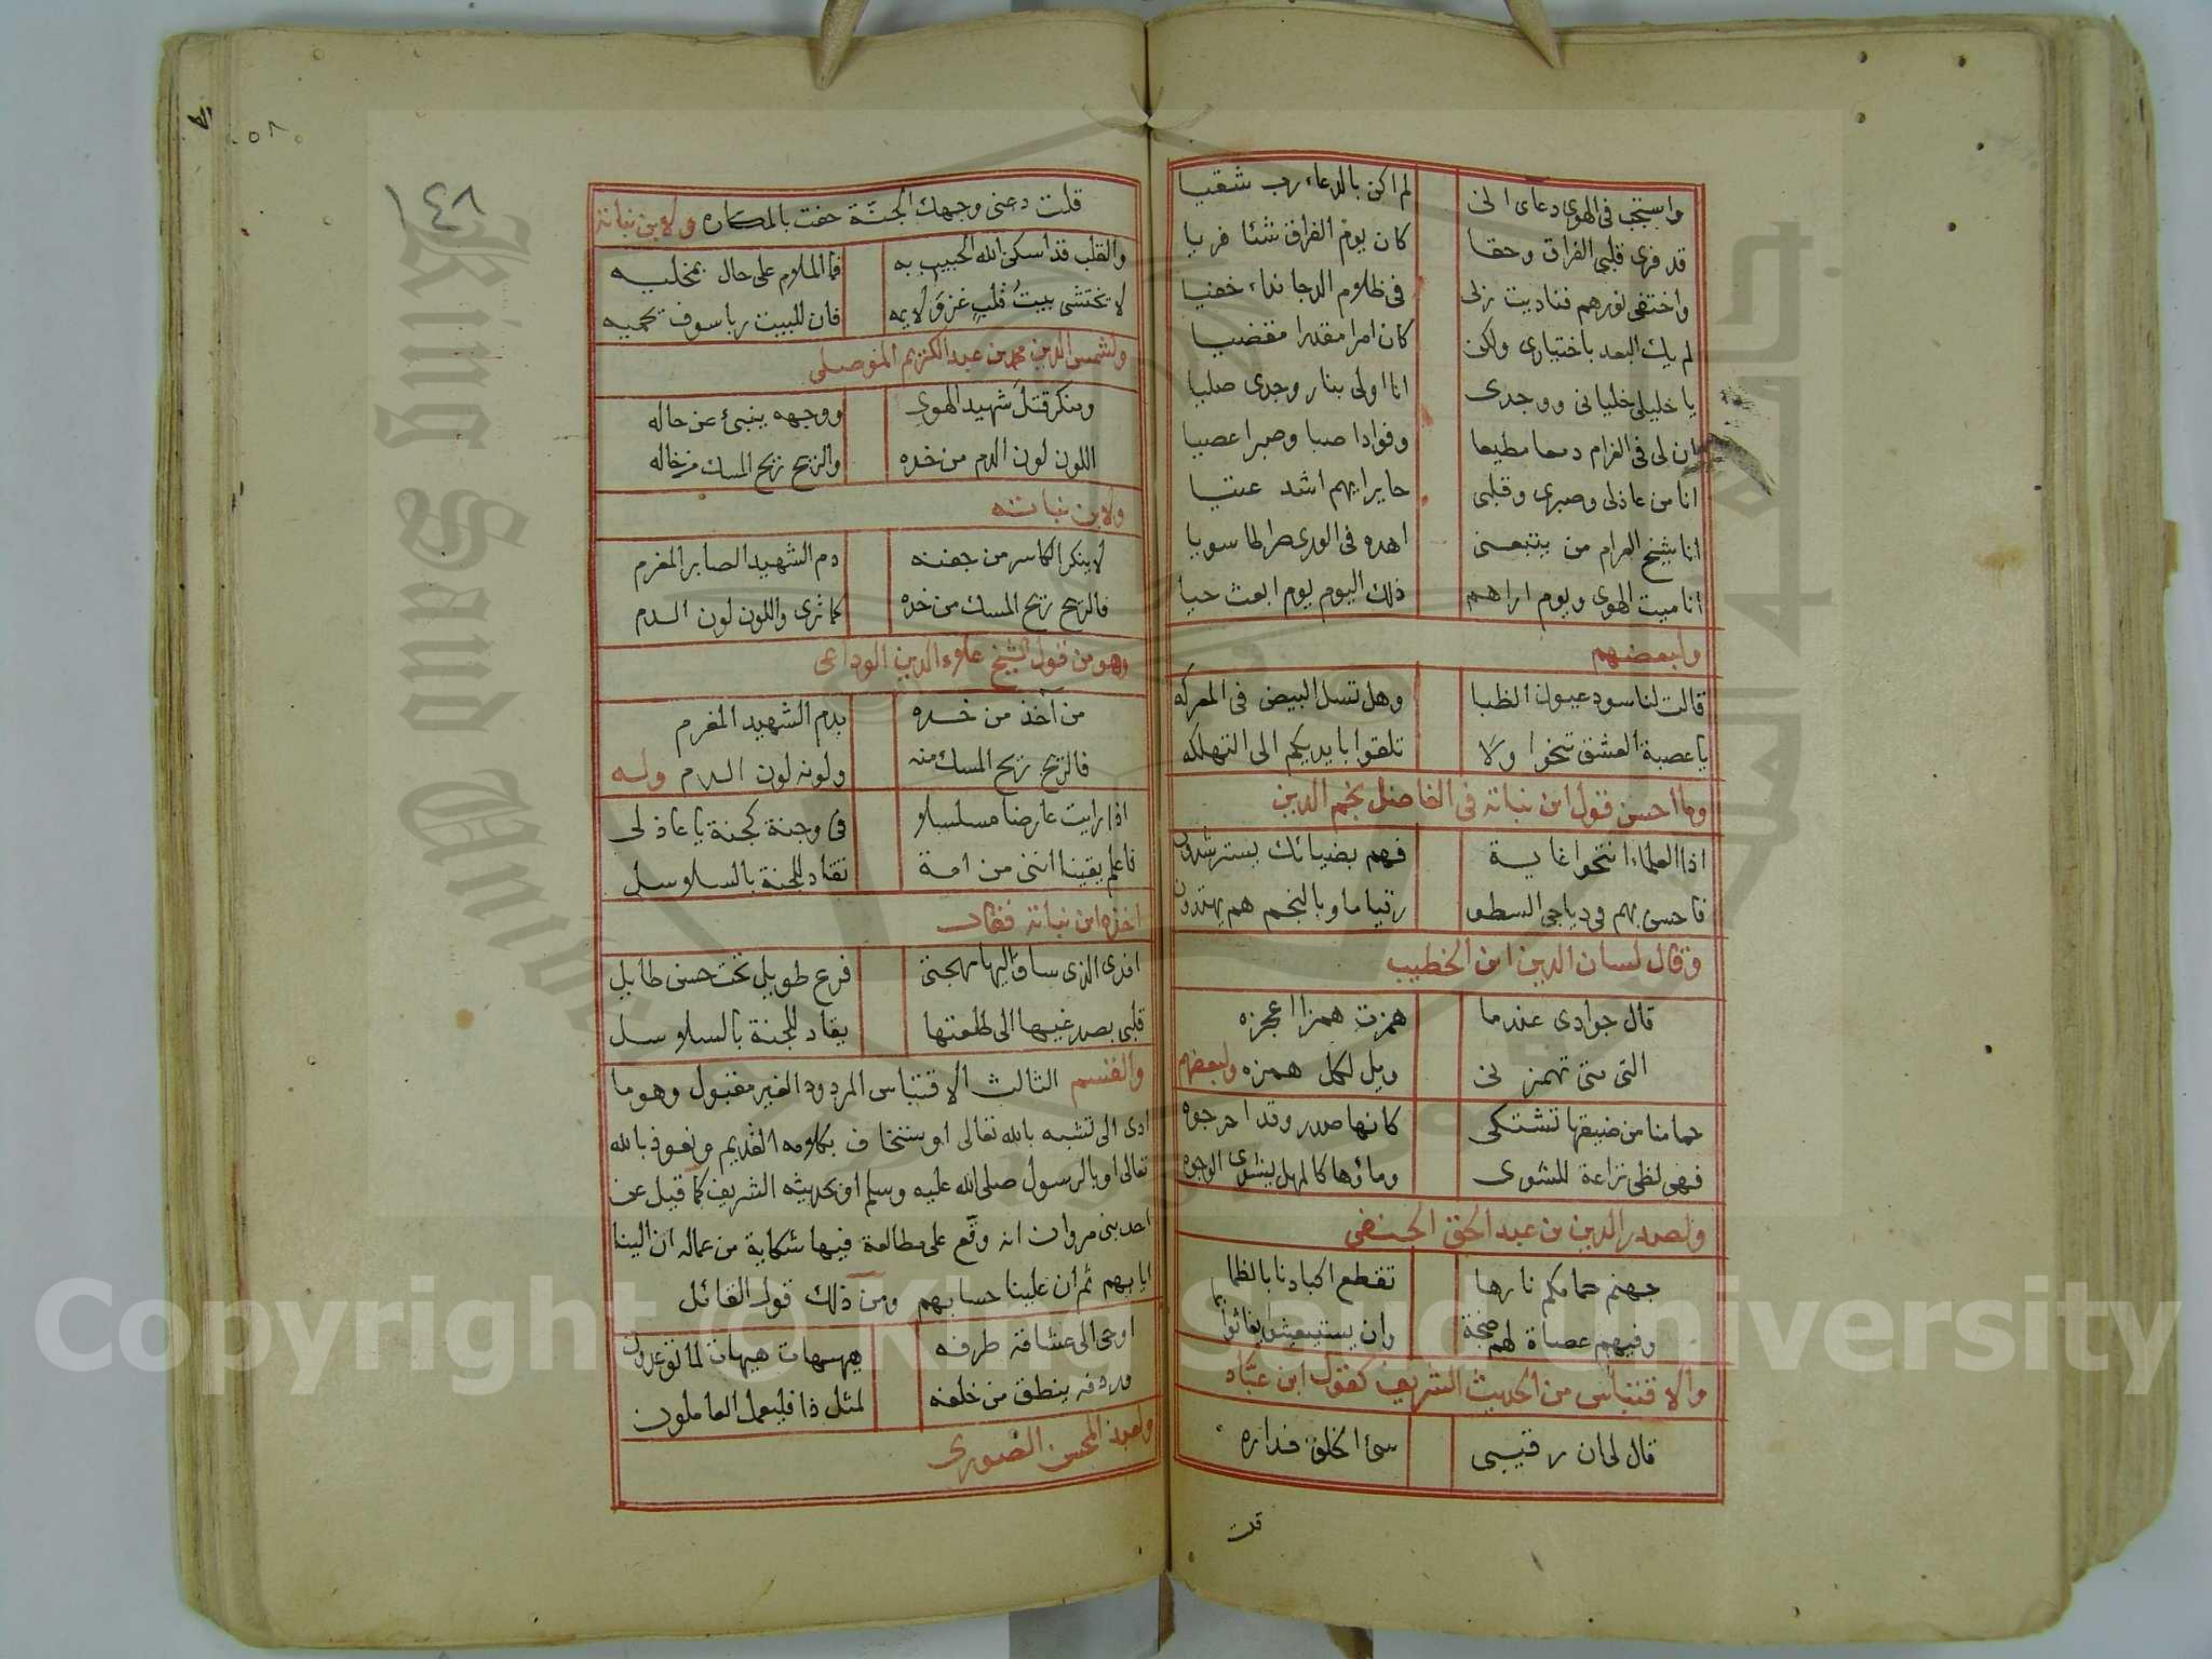 واستجب في الهوى دعاى انى لم اكن بالدعاء رب شقيا
قد فرى قلبى الفراق وحقا كان يوم الفراق شئا فريا
واختفى نورهم فناديت ربى فى ظلام الدجا نداء خفيا
لم يك البعد باختيارى ولكن كان امرا مقدرا مقضيا
يا خليلى خليانى ووجدى انا اولى بنار وجدى صليا
ان لى فى الغرام دمعا مطيعا وفوادا صبا وصبرا عصيا
انا من عاذلى وصبرى وقلبى حايرا ايهم اشد عتيا
انا شيخ الغرام من يتبعنى اهده فى الورى صراطا سويا
انا ميت الهوى ويوم اراهم ذلك اليوم يوم ابعث حيا
ولبعضهم
قالت لنا سود عيون الظبا وهل تسل البيض فى المعركه
يا عصبة العشق تنحوا ولا تلقوا بايديكم الى التهلكه
وما احسن قول ابن نباته فى الفاضل نجم الدين
اذا العلماء انتحوا غاية فهم بضيائك يسترشدون
فاحسن بهم فى دياجى السطو رقياما وبالنجم هم يهتدون
وقال لسان الدين ابن الخطيب
قال جوادى عندما همزت همزا اعجزه
التى متى تهمزنى ويل لكل همزه ولبعضهم
حمامنا من ضيقها تشتكى كانها صدر وقد احرجوه
فهى لظى نزاعة للشوى وماؤها كالمهل يشوى الوجوه
ولصدر الدين بن عبد الحق الحنفى
جهنم حمامكم نارها تقطع اكبادنا بالظما
وفيهم عصاة لهم ضجة وان يستغيثوا يغاثوا بما
والاقتباس من الحديث الشريف كقول ابن عبّاد
قال لى ان رقيبى سئ الخلق فداره
قلت
١٤٨
٥٨
قلت دعنى وجهك الجنّة حفت بالمكاره ولابن نباتة
والقلب قد اسكن الله الحبيب به فما الملام على حال بمخليه
لا يختشى بيت قلب غزو لايمه فان للبيت ربا سوف يحميه
ولشمس الدين محمد بن عبد الكريم الموصلى
ومنكر قتل شهيد الهوى ووجهه ينبئ عن حاله
اللون لون الدم من خده والريح ريح المسك من خاله
ولابن نباتته
لا ينكر الكاسر من جفنه دم الشهيد الصابر المغرم
فالريح ريح المسك من خده كما ترى واللون لون الدم
وهو من قول الشيخ علاء الدين الوداعى
من آخذ من خده بدم الشهيد المغرم
فالريح ريح المسك منه ولونه لون الدم وله
اذا رايت عارضا مسلسلا فى وجنة كجنة يا عاذلى
فاعلم يقينا اننى من امة تقاد للجنة بالسلاسل
اخذه ابن نباتة فقال
افدى الذى ساق اليها مهجتى فرع طويل تحت حسن طايل
قلبى بصدغيها الى طلعتها يقاد للجنة بالسلاسل
والقسم الثالث الاقتباس المردود الغير مقبول وهو ما
ادى الى تشبه بالله تعالى او ستخاف بكلامه القديم ونعوذ بالله
تعالى او بالرسول صلى الله عليه وسلم او بحديثه الشريف كما قيل عن
احد بنى مروان انه وقّع على مطالعة فيها شكاية من عماله ان الينا
ايابهم ثم ان علينا حسابهم ومن ذلك قول القائل
اوحى الى عشاقه طرفه هيهات هيهات لما توعدون
وردفه ينطق من خلفه لمثل ذا فليعمل العاملون
ولعبد المحسن الصورى
Copyright © King Saud University
King Saud University